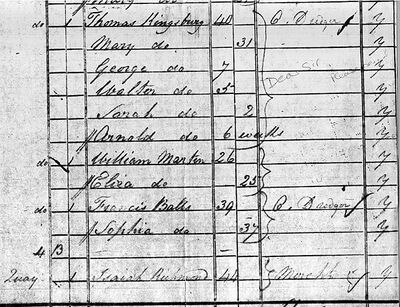 do 1 Thomas Kingsbury 40 Y
Mary do 31 Y
George do 7 Y
Dear Sir
Walter do 5 Y
Sarah do 2 Y
Arnold do 6 weeks Y
do 1 William Martin 26 Y
Eliza do 25 Y
do 1 Francis Balls 39 Y
Sophia do 37 Y
4 B
Quay 1 Isaiah Y